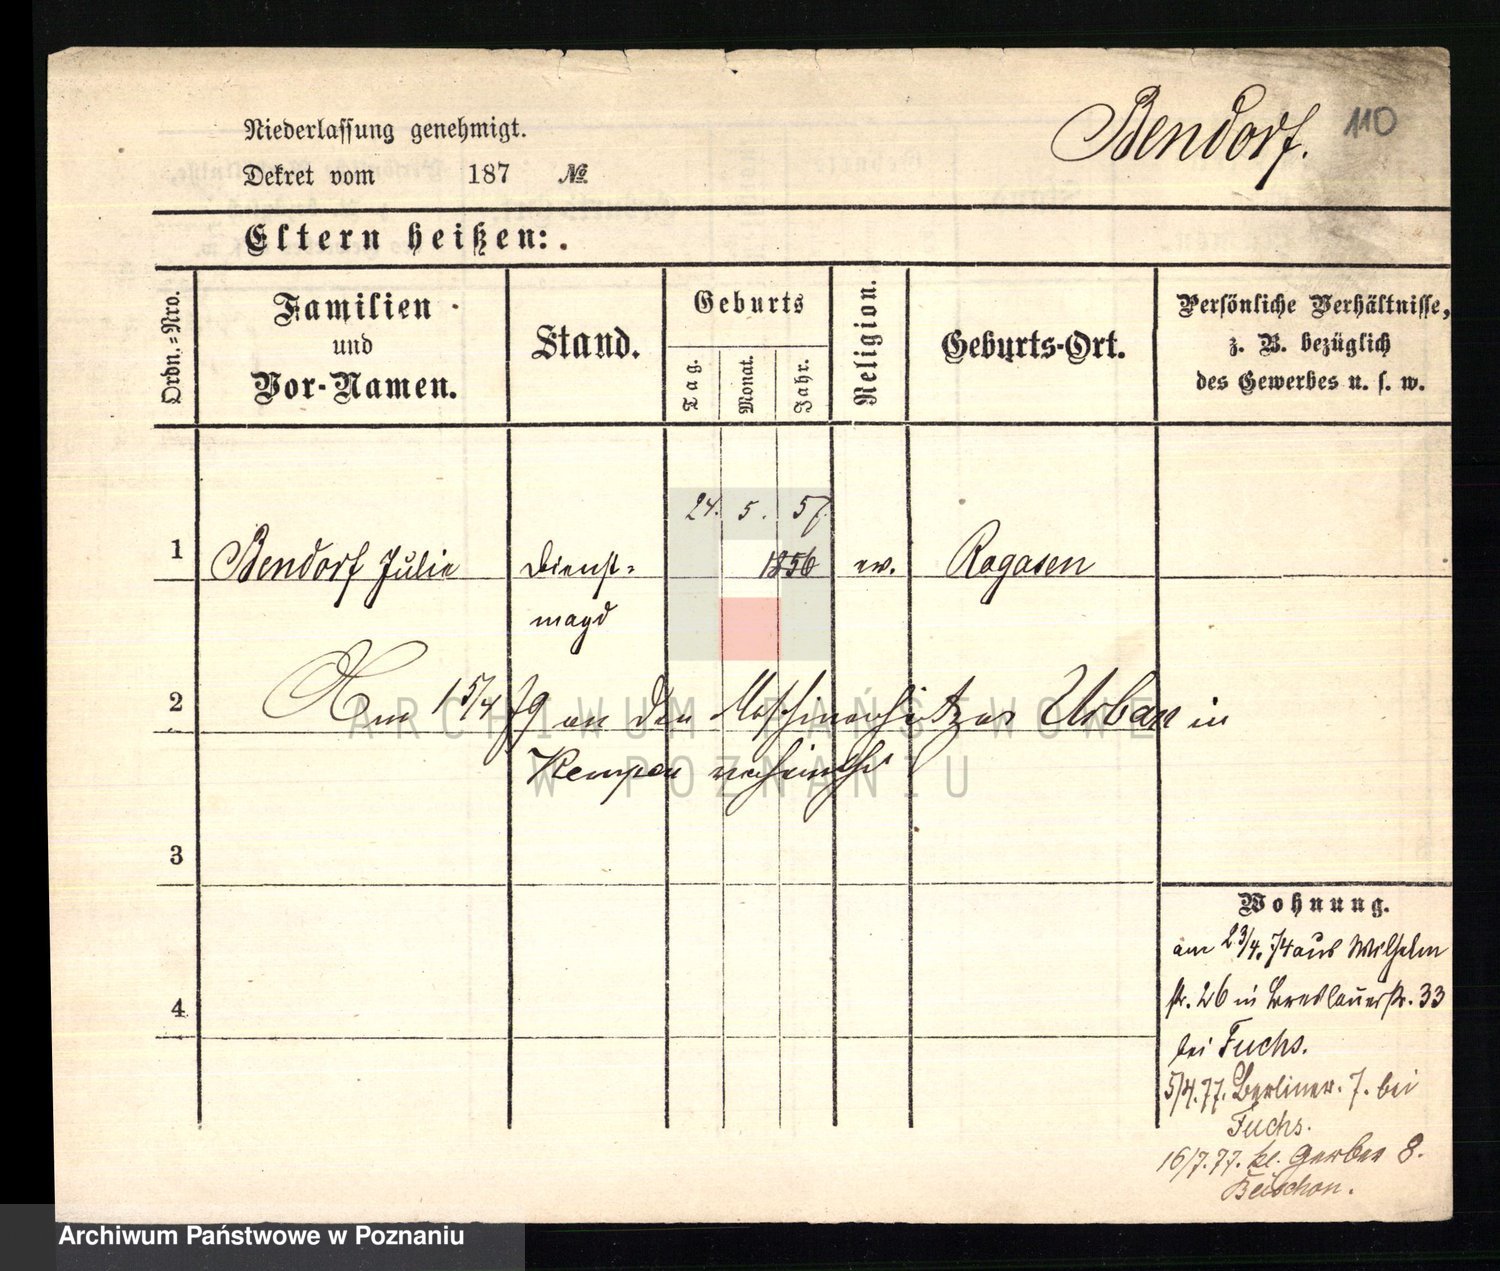 Bendorf. 110
Niederlassung genehmigt.
Dekret vom 187 №
Eltern heißen:.
Ordn.=Nro.
Familien
und
Vor-Namen.
Stand.
Geburts
Tag. Monat. Jahr.
Religion.
Geburts-Ort.
Persönliche Verhältnisse,
z. B. bezüglich
des Gewerbes u. s. w.
24. 5. 57.
1 Bendorf Julie Dienst= 1856 ev. Rogasen
magd
2 Am 15/4 79 an den Maschinenheizer Urban in
Kempen verheirathet
3
4
Wohnung.
am 23/4. 74 aus Wilhelm
str. 26 in Breslauerstr. 33
bei Fuchs.
5/4. 77. Berliner. 7. bei
Fuchs.
16/7. 77. kl. Gerber 8.
ARCHIWUM PAŃSTWOWE
W POZNANIU
Archiwum Państwowe w Poznaniu